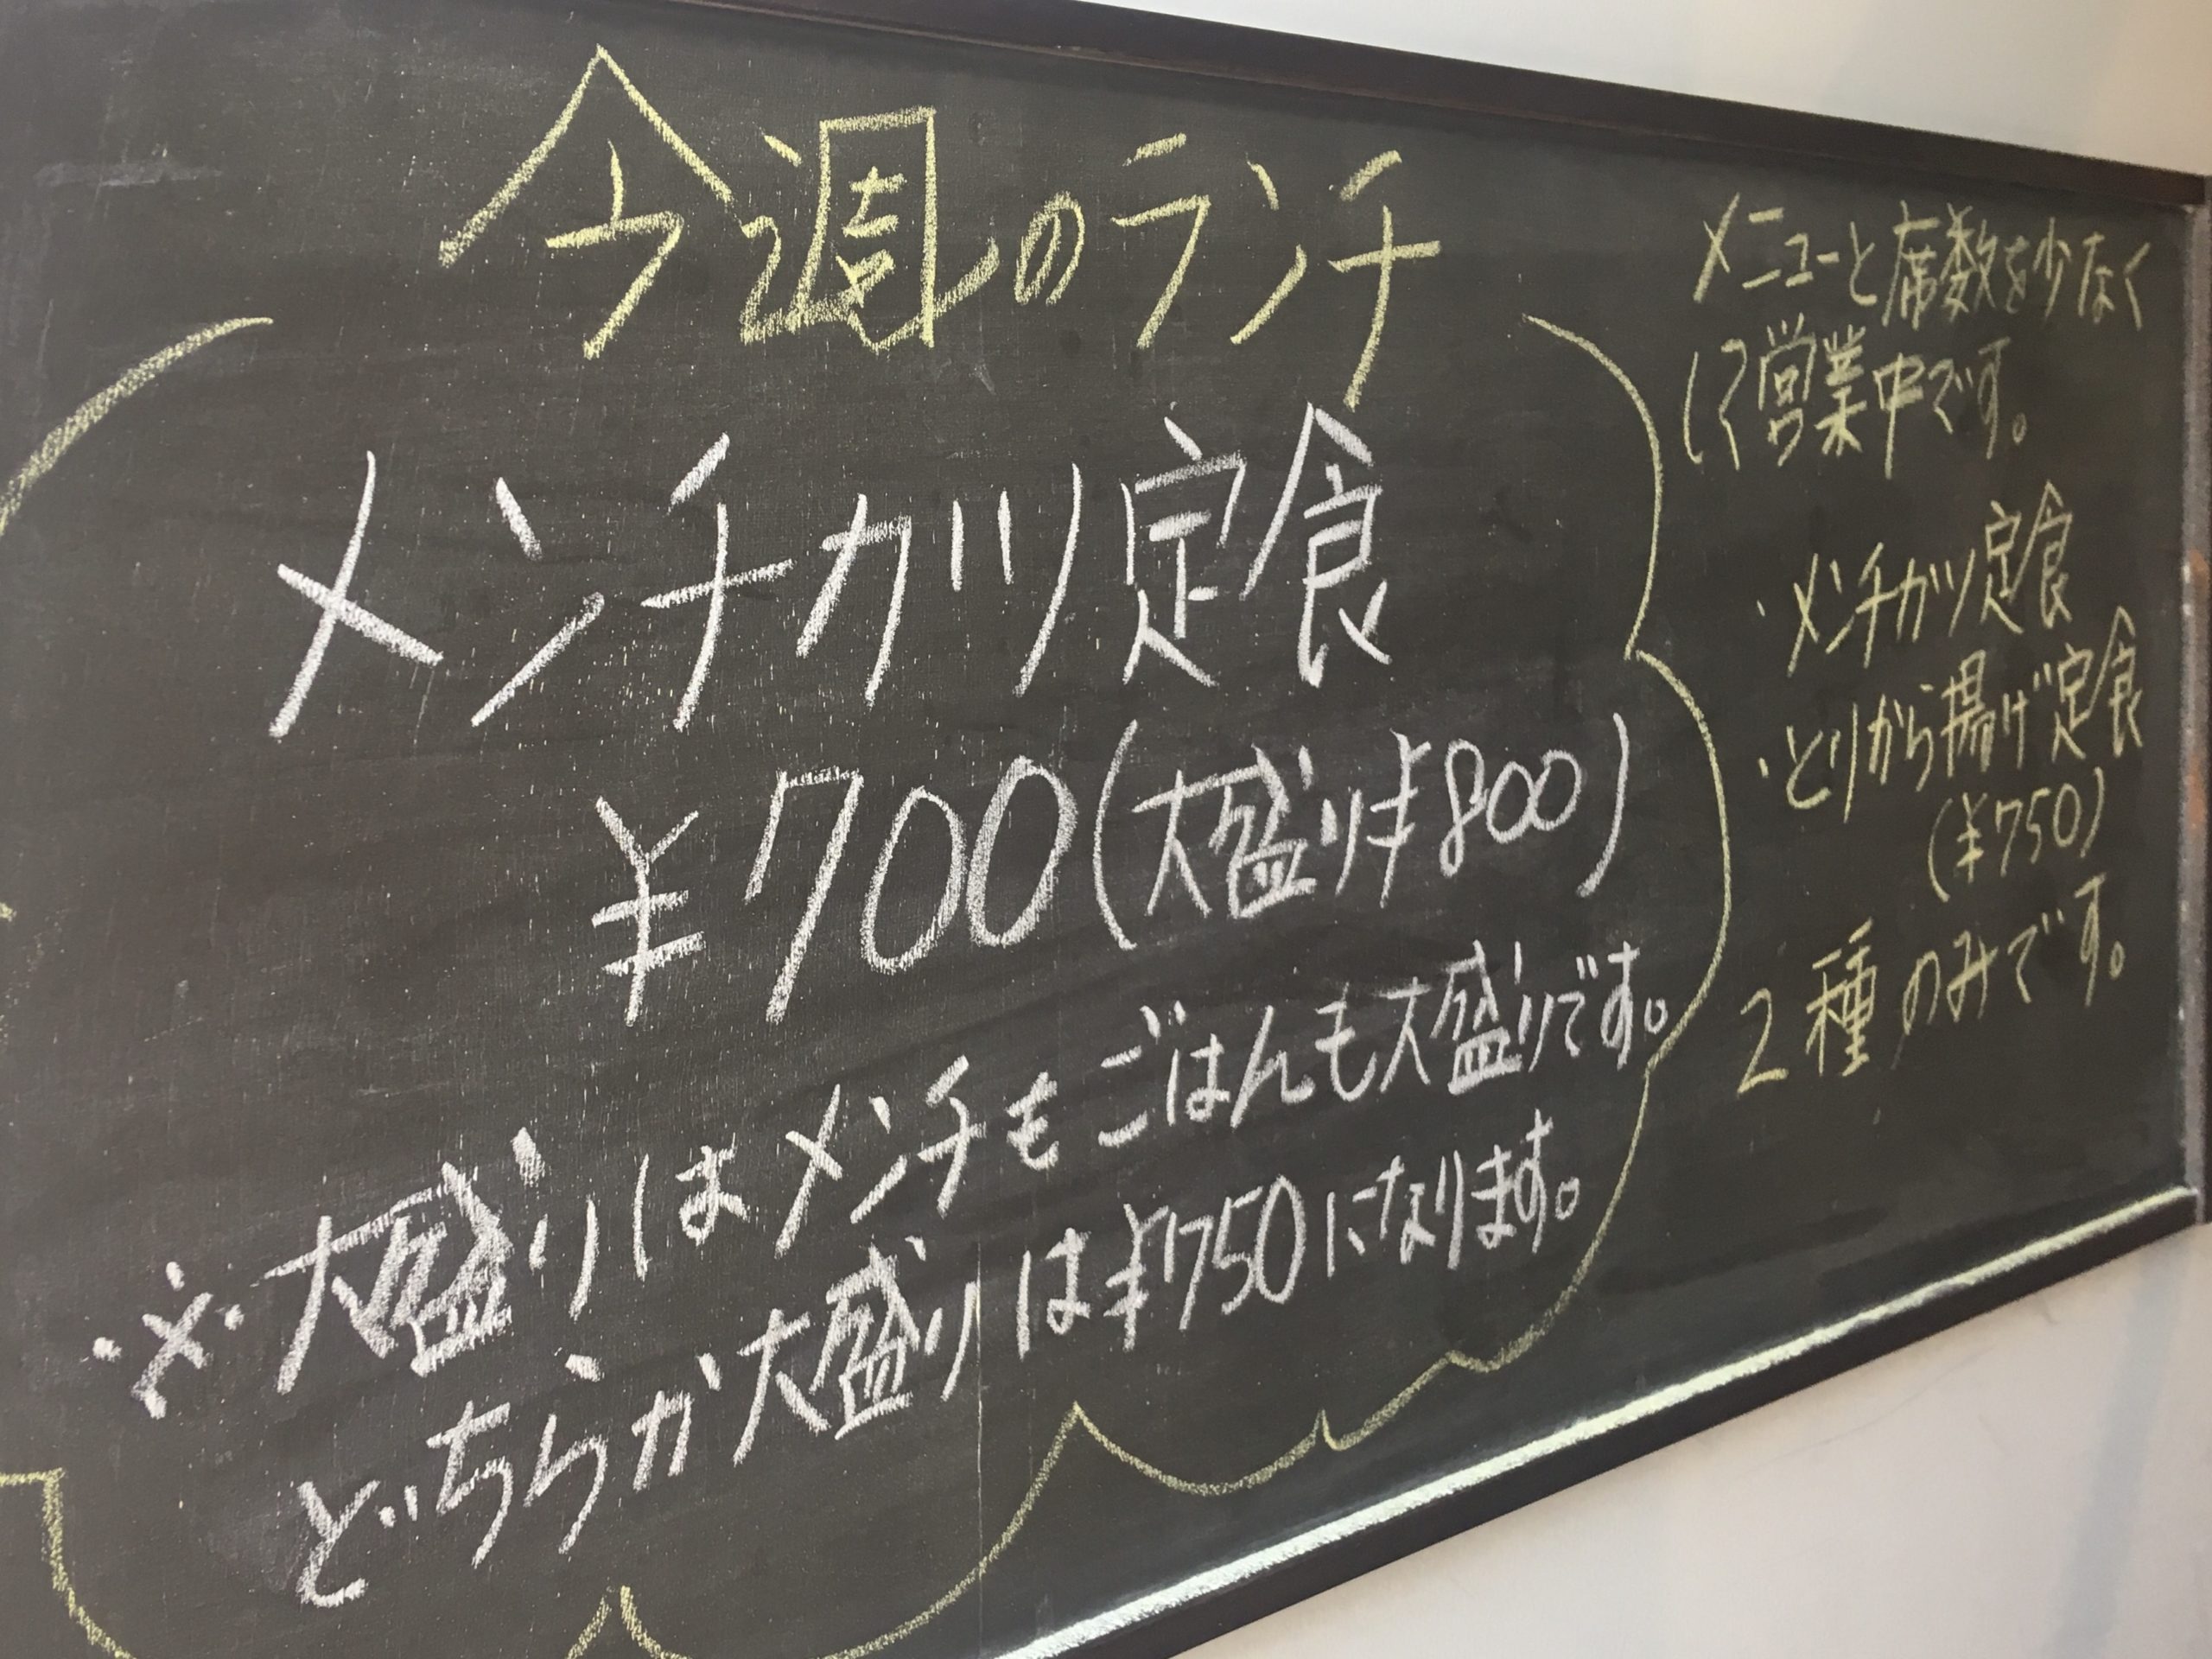 今週のランチ
メンチカツ定食
¥700(大盛り¥800)
※大盛りはメンチもごはんも大盛りです。
どちらか大盛りは¥750になります。
メニューと席数を少なく
して営業中です。
・メンチカツ定食
・とりから揚げ定食
(¥750)
2種のみです。